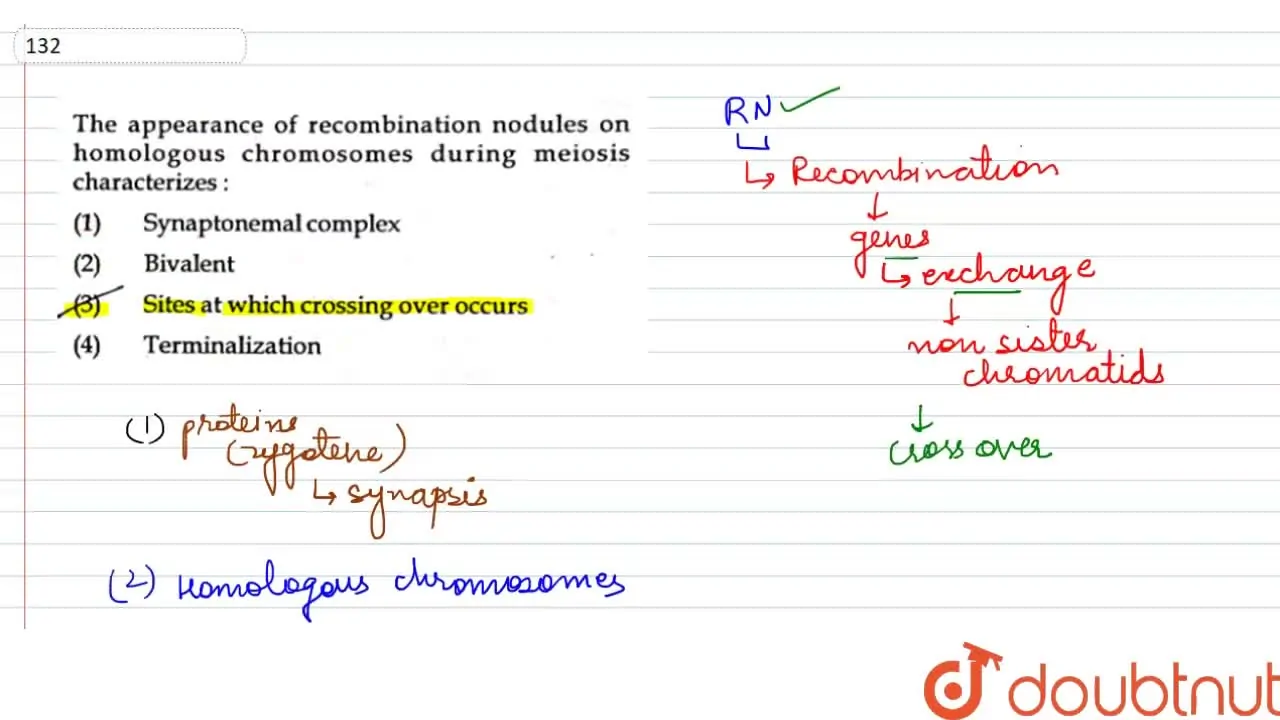 132
The appearance of recombination nodules on
homologous chromosomes during meiosis
characterizes :
(1) Synaptonemal complex
(2) Bivalent
(3) Sites at which crossing over occurs
(4) Terminalization
(1) proteins
(zygotene)
↳ synapsis
(2) Homologous chromosomes
RN ✓
↳ Recombination
↓
genes
↳ exchange
↓
non sister
chromatids
↓
cross over
doubtnut